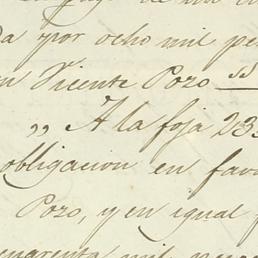 da por ocho mil pe
n Vicente Pozo
„ A la foja 23
obligacion en fav
Pozo, y en igual
uarenta mil